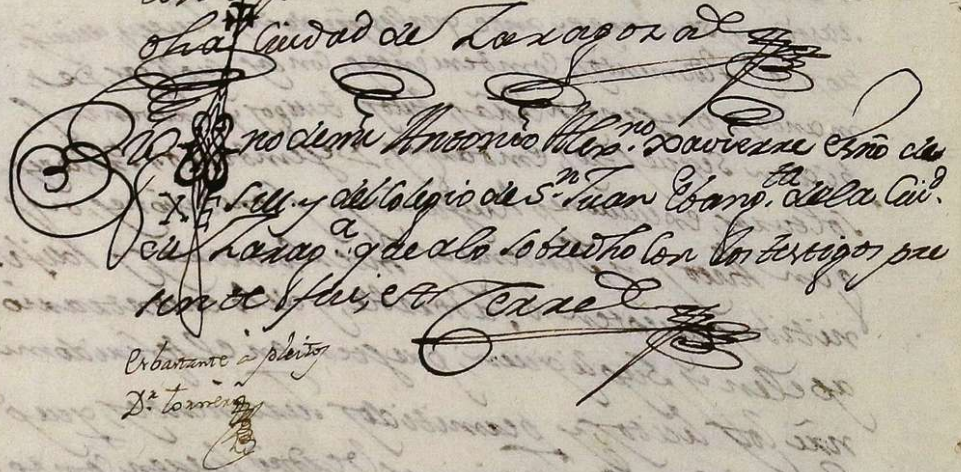 dha Ciudad de Zaragoza
Sig no de mi Antonio Alexno. Xavierre Essno de
S.M. y del Colegio de Sn. Juan Evangta. de la Ciud.
de Zarag.a que a lo sobredho con los testigos pre
sente fui, et Zerre
Es bastante á pleitos
Dr. Torrero